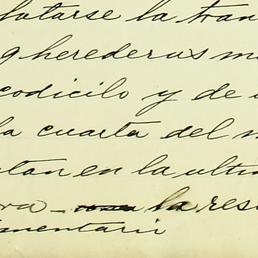 latarse la tran
y herederos m
codicilo y de
la cuarta del
tan en la ultim
va - la res
mentaria